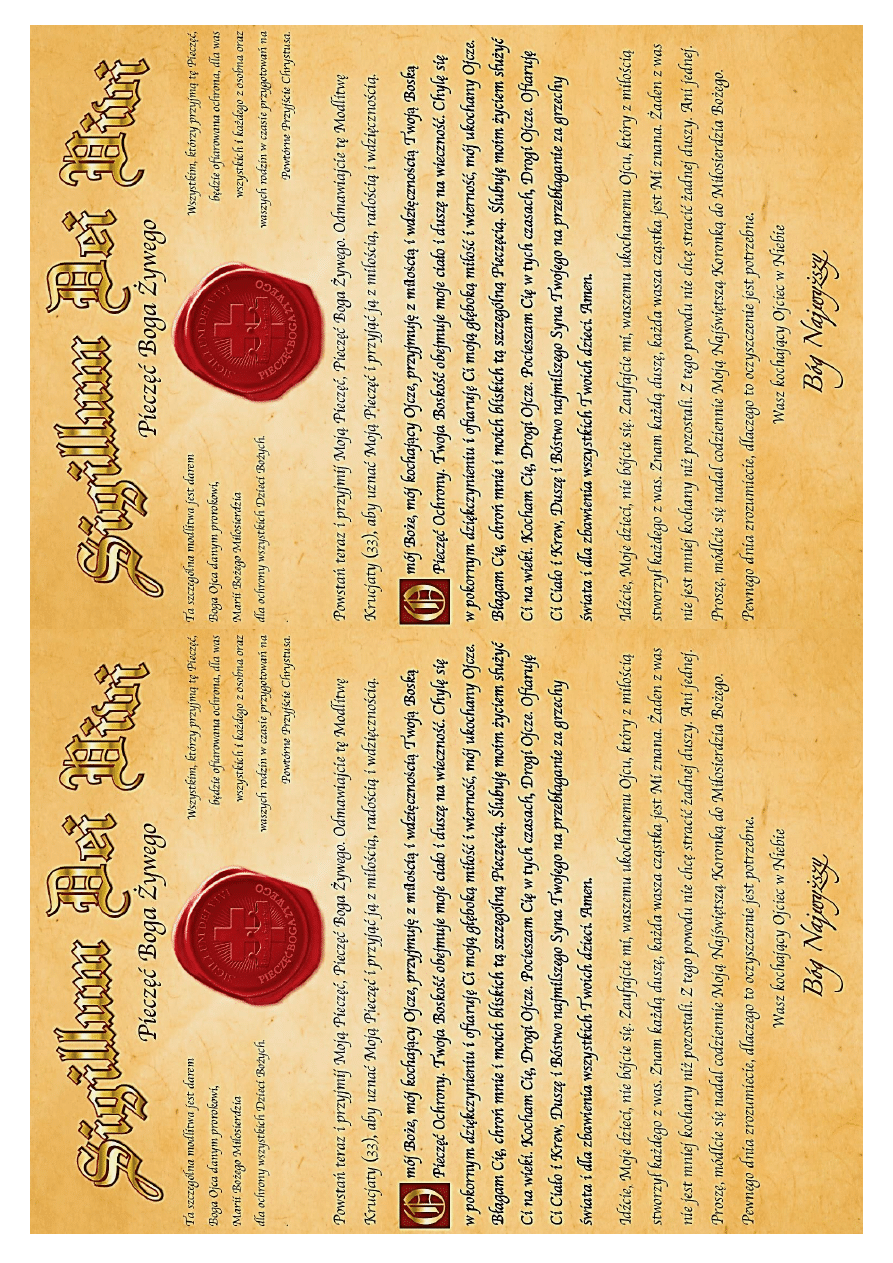 Sigillum Dei Vivi
Pieczęć Boga Żywego
Ta szczególna modlitwa jest darem
Boga Ojca danym prorokowi,
Marii Bożego Miłosierdzia
dla ochrony wszystkich Dzieci Bożych.
.
SIGILLUM DEI VIVI
PIECZĘĆ BOGA ŻYWEGO
Wszystkim, którzy przyjmą tę Pieczęć,
będzie ofiarowana ochrona, dla was
wszystkich i każdego z osobna oraz
waszych rodzin w czasie przygotowań na
Powtórne Przyjście Chrystusa.
Powstań teraz i przyjmij Moją Pieczęć, Pieczęć Boga Żywego. Odmawiajcie tę Modlitwę
Krucjaty (33), aby uznać Moją Pieczęć i przyjąć ją z miłością, radością i wdzięcznością.
O mój Boże, mój kochający Ojcze, przyjmuję z miłością i wdzięcznością Twoją Boską
Pieczęć Ochrony. Twoja Boskość obejmuje moje ciało i duszę na wieczność. Chylę się
w pokornym dziękczynieniu i ofiaruję Ci moją głęboką miłość i wierność, mój ukochany Ojcze.
Błagam Cię, chroń mnie i moich bliskich tą szczególną Pieczęcią. Ślubuję moim życiem służyć
Ci na wieki. Kocham Cię, Drogi Ojcze. Pocieszam Cię w tych czasach, Drogi Ojcze. Ofiaruję
Ci Ciało i Krew, Duszę i Bóstwo najmilszego Syna Twojego na przebłaganie za grzechy
świata i dla zbawienia wszystkich Twoich dzieci. Amen.
Idźcie, Moje dzieci, nie bójcie się. Zaufajcie mi, waszemu ukochanemu Ojcu, który z miłością
stworzył każdego z was. Znam każdą duszę, każda wasza cząstka jest Mi znana. Żaden z was
nie jest mniej kochany niż pozostali. Z tego powodu nie chcę stracić żadnej duszy. Ani jednej.
Proszę, módlcie się nadal codziennie Moją Najświętszą Koronką do Miłosierdzia Bożego.
Pewnego dnia zrozumiecie, dlaczego to oczyszczenie jest potrzebne.
Wasz kochający Ojciec w Niebie
Bóg Najwyższy
Sigillum Dei Vivi
Pieczęć Boga Żywego
Ta szczególna modlitwa jest darem
Boga Ojca danym prorokowi,
Marii Bożego Miłosierdzia
dla ochrony wszystkich Dzieci Bożych.
.
SIGILLUM DEI VIVI
PIECZĘĆ BOGA ŻYWEGO
Wszystkim, którzy przyjmą tę Pieczęć,
będzie ofiarowana ochrona, dla was
wszystkich i każdego z osobna oraz
waszych rodzin w czasie przygotowań na
Powtórne Przyjście Chrystusa.
Powstań teraz i przyjmij Moją Pieczęć, Pieczęć Boga Żywego. Odmawiajcie tę Modlitwę
Krucjaty (33), aby uznać Moją Pieczęć i przyjąć ją z miłością, radością i wdzięcznością.
O mój Boże, mój kochający Ojcze, przyjmuję z miłością i wdzięcznością Twoją Boską
Pieczęć Ochrony. Twoja Boskość obejmuje moje ciało i duszę na wieczność. Chylę się
w pokornym dziękczynieniu i ofiaruję Ci moją głęboką miłość i wierność, mój ukochany Ojcze.
Błagam Cię, chroń mnie i moich bliskich tą szczególną Pieczęcią. Ślubuję moim życiem służyć
Ci na wieki. Kocham Cię, Drogi Ojcze. Pocieszam Cię w tych czasach, Drogi Ojcze. Ofiaruję
Ci Ciało i Krew, Duszę i Bóstwo najmilszego Syna Twojego na przebłaganie za grzechy
świata i dla zbawienia wszystkich Twoich dzieci. Amen.
Idźcie, Moje dzieci, nie bójcie się. Zaufajcie mi, waszemu ukochanemu Ojcu, który z miłością
stworzył każdego z was. Znam każdą duszę, każda wasza cząstka jest Mi znana. Żaden z was
nie jest mniej kochany niż pozostali. Z tego powodu nie chcę stracić żadnej duszy. Ani jednej.
Proszę, módlcie się nadal codziennie Moją Najświętszą Koronką do Miłosierdzia Bożego.
Pewnego dnia zrozumiecie, dlaczego to oczyszczenie jest potrzebne.
Wasz kochający Ojciec w Niebie
Bóg Najwyższy